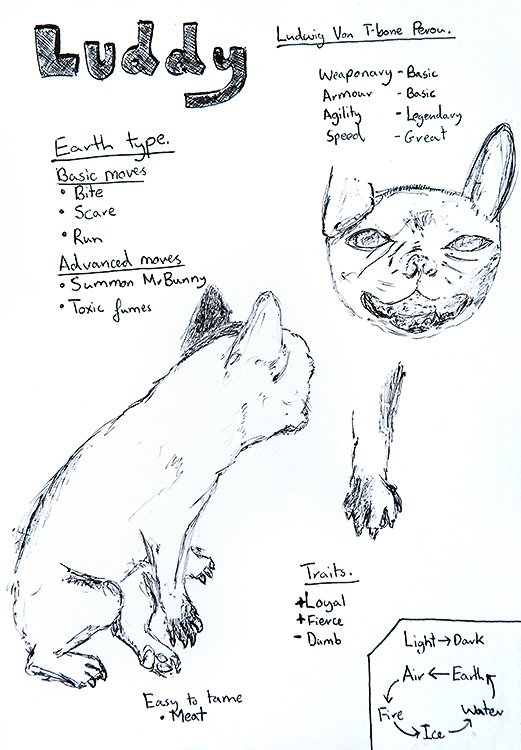 Luddy
Ludwig Von T-bone Perou.
Weaponary - Basic
Armour - Basic
Agility - Legendary
Speed - Great
Earth type.
Basic moves
• Bite
• Scare
• Run
Advanced moves
• Summon Mr Bunny
• Toxic fumes
Traits.
+ Loyal
+ Fierce
- Dumb
Easy to tame
• Meat
Light → Dark
Air ← Earth
Fire
Water
Ice